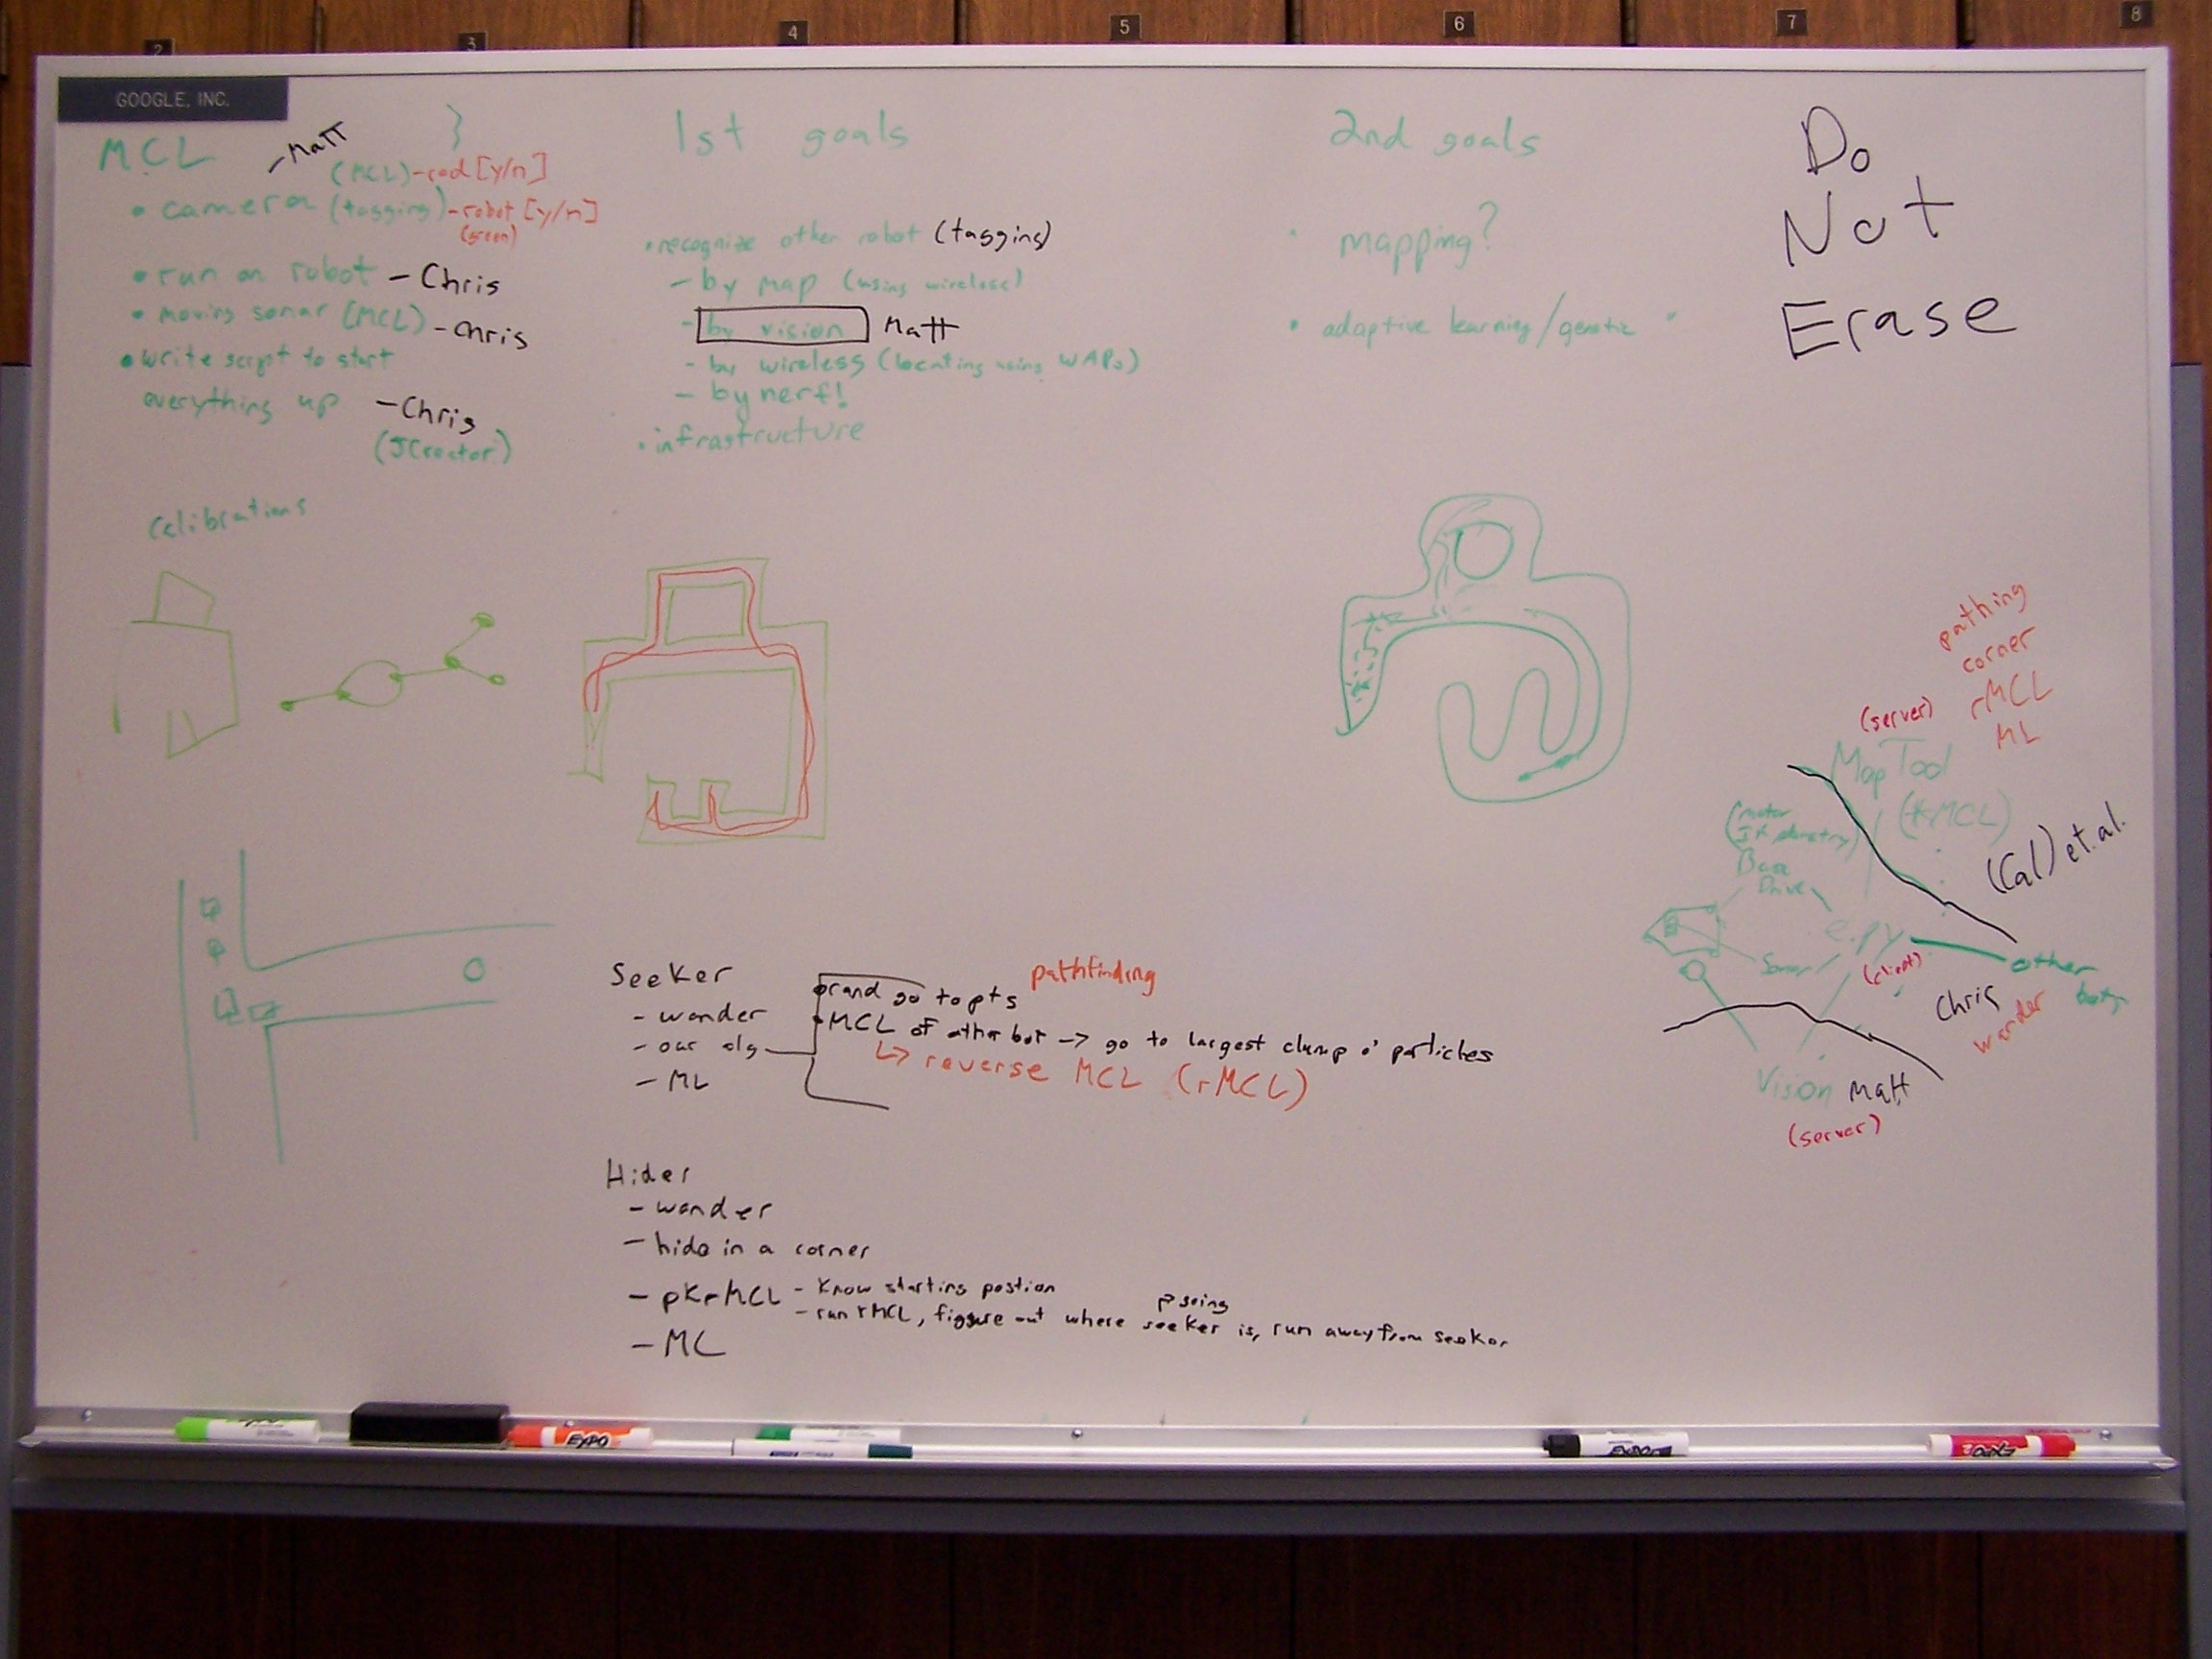 2 3 4 5 6 7 8
GOOGLE, INC.
MCL - Matt
(MCL) - red [y/n]
• camera (tagging) - robot [y/n]
(seen)
• run on robot - Chris
• moving sonar [MCL] - Chris
• write script to start
everything up - Chris
(JCreator)
Calibrations
1st goals
• recognize other robot (tagging)
- by map (using wireless)
- by vision Matt
- by wireless (locating using WAPs)
- by nerf!
• infrastructure
2nd goals
• mapping?
• adaptive learning/genetic
Do
Not
Erase
Seeker
- wander
- our alg
- ML
rand go to pts pathfinding
MCL of other bot -> go to largest clump o' particles
↳ reverse MCL (rMCL)
Hider
- wander
- hide in a corner
- pKrMCL - Know starting postion
- run rMCL, figgure out where seeker is, run away from seeker
going
- MC
pathing
corner
rMCL
ML
(server)
Map Tool
(MCL)
(Cal) et. al.
(motor
Base
Drive
Sonar
e.py
(client)
other
bots
Chris
wander
Vision Matt
(server)
EXPO
EXPO